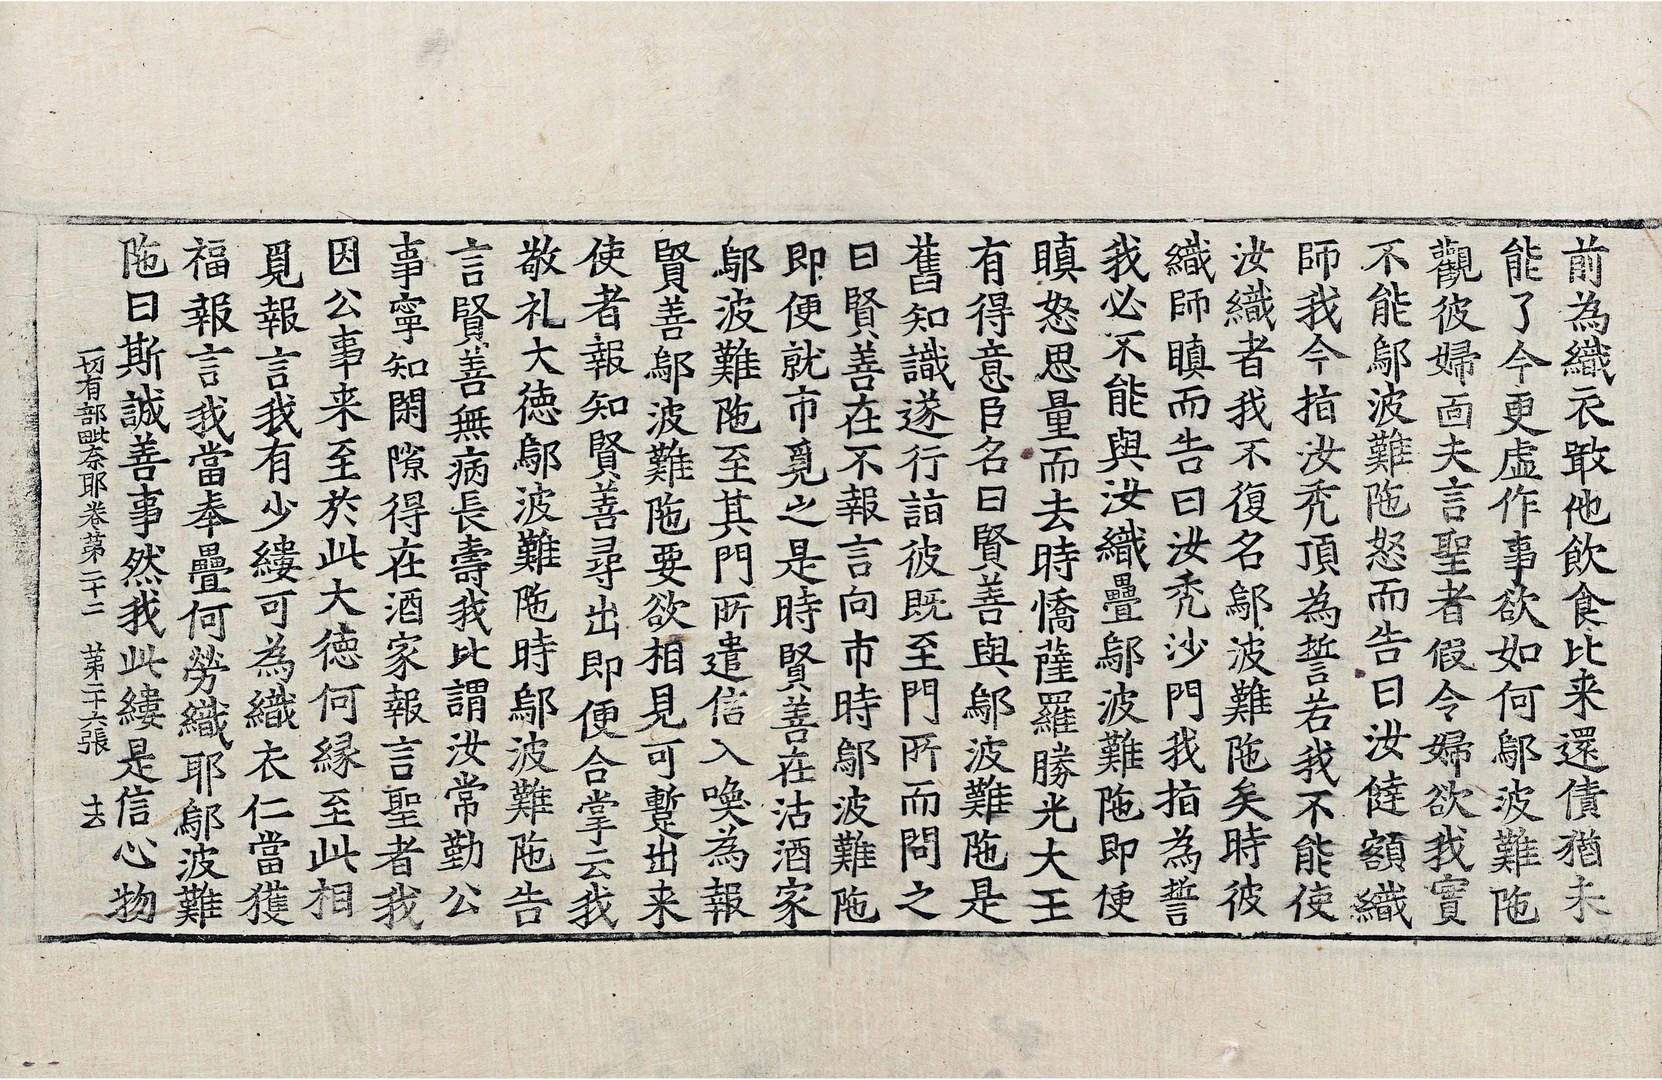 前為織衣敢他飲食比来還債猶未
能了今更虛作事欲如何鄔波難陁
觀彼婦面夫言聖者假令婦欲我實
不能鄔波難陁怒而告曰汝㒓額織
師我今指汝禿頂為誓若我不能使
汝織者我不復名鄔波難陁矣時彼
織師瞋而告曰汝禿沙門我指為誓
我必不能與汝織疊鄔波難陁即便
瞋怒思量而去時憍薩羅勝光大王
有得意臣名曰賢善與鄔波難陁是
舊知識遂行詣彼既至門所而問之
曰賢善在不報言向市時鄔波難陁
即便就市覓之是時賢善在沽酒家
鄔波難陁至其門所遣信入喚為報
賢善鄔波難陁要欲相見可蹔出来
使者報知賢善尋出即便合掌云我
敬礼大徳鄔波難陁時鄔波難陁告
言賢善無病長壽我比謂汝常勤公
事寧知閑隙得在酒家報言聖者我
因公事来至於此大徳何縁至此相
覓報言我有少縷可為織衣仁當獲
福報言我當奉疊何勞織耶鄔波難
陁曰斯誠善事然我此縷是信心物
一切有部毗奈耶卷第二十二　第二十六張　去